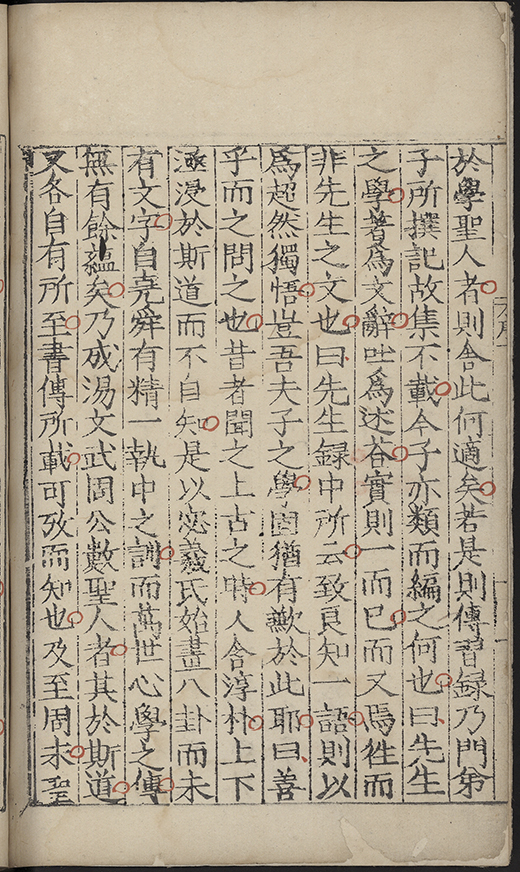 於學聖人者則舍此何適矣若是則傳習録乃門弟
子所撰記故集不載今子亦類而編之何也曰先生
之學著爲文辭吐爲述荅實則一而已而又焉徃而
非先生之文也曰先生録中所云致良知一語則以
爲超然獨悟豈吾夫子之學固猶有歉於此耶曰善
乎而之問之也昔者聞之上古之時人含淳朴上下
涵浸於斯道而不自知是以宓羲氏始畫八卦而未
有文字自堯舜有精一執中之訓而萬世心學之傳
無有餘藴矣乃成湯文武周公數聖人者其於斯道
又各自有所至書傳所載可攷而知也及至周末聖